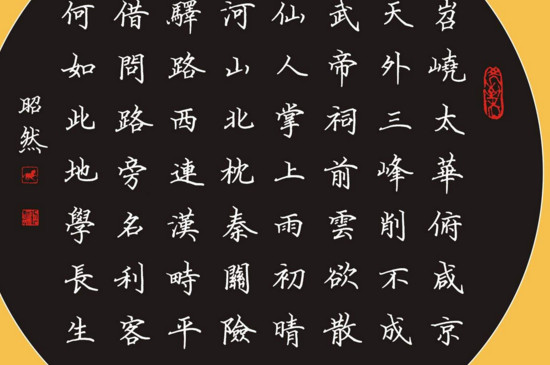 岧嶢太華俯咸京
天外三峰削不成
武帝祠前雲欲散
仙人掌上雨初晴
河山北枕秦關險
驛路西連漢畤平
借問路旁名利客
何如此地學長生
昭然